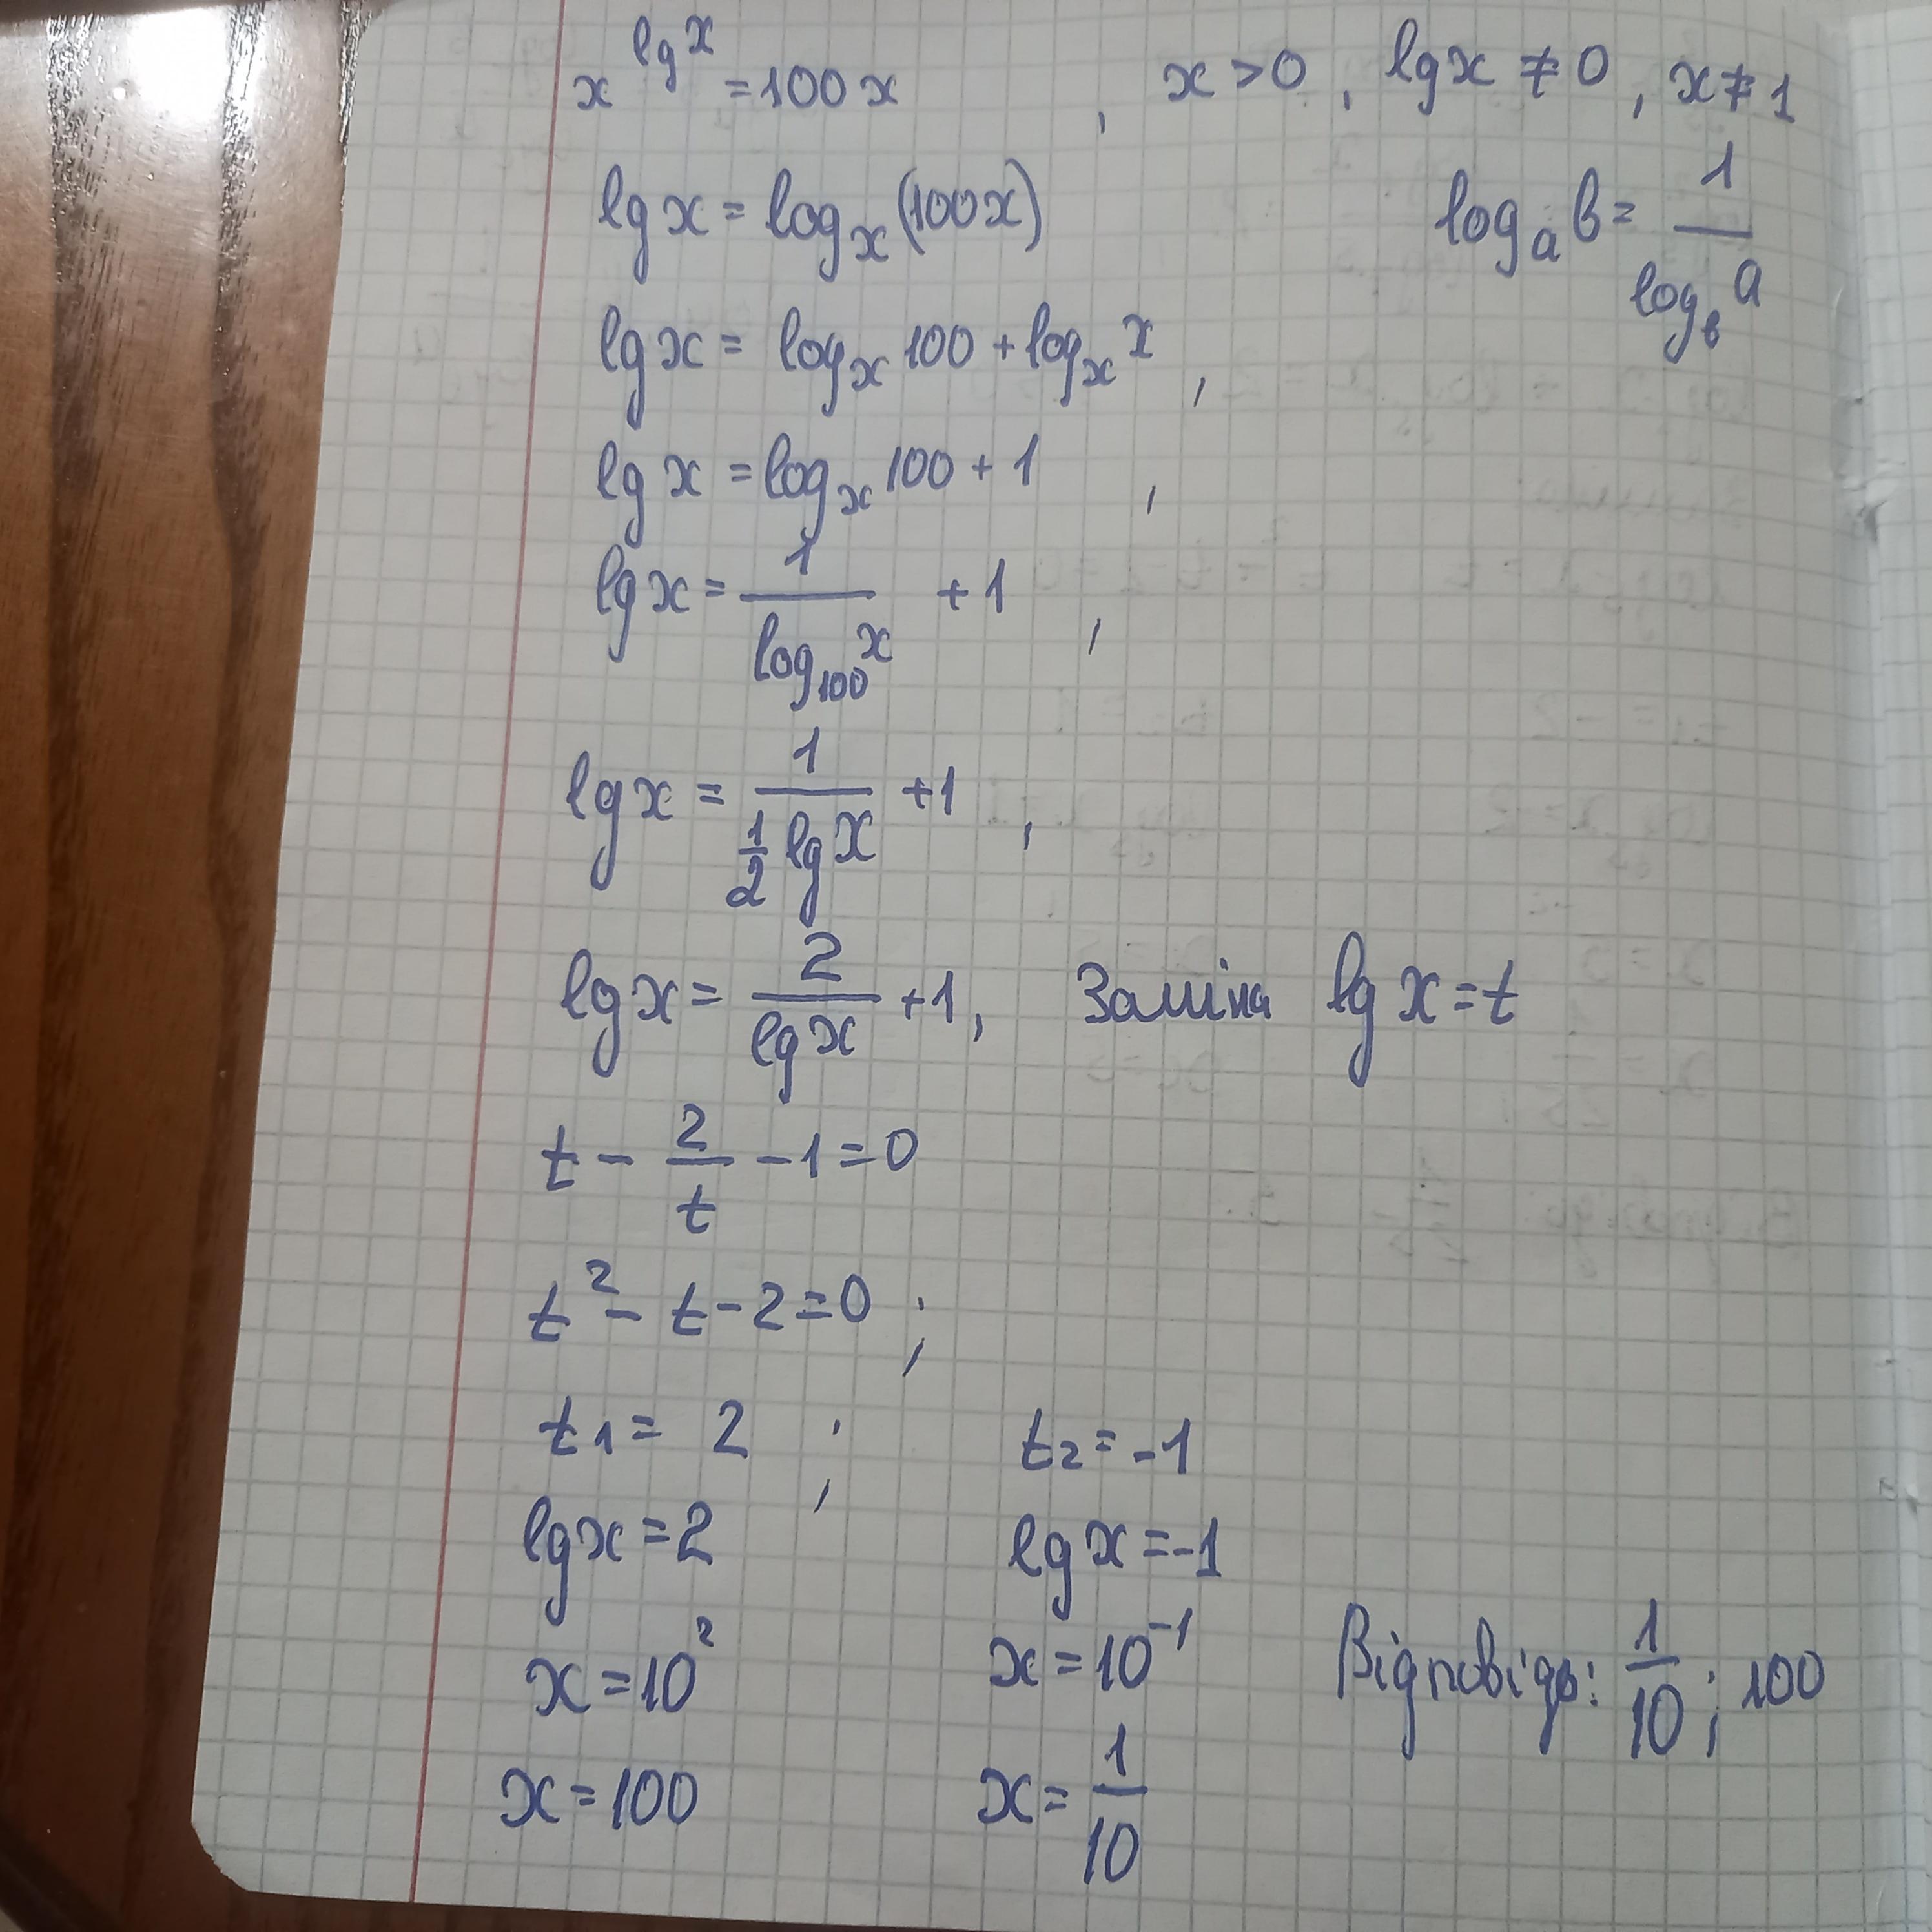 x^{lg x} = 100x , x > 0 , lg x ≠ 0 , x ≠ 1
lg x = log_x (100x) log_a b = 1/log_b a
lg x = log_x 100 + log_x x ,
lg x = log_x 100 + 1 ,
lg x = 1/log_{100} x + 1 ,
lg x = 1/(1/2 lg x) + 1 ,
lg x = 2/lg x + 1 , Заміна lg x = t
t - 2/t - 1 = 0
t² - t - 2 = 0 ;
t₁ = 2 ; t₂ = -1
lg x = 2 lg x = -1
x = 10² x = 10⁻¹ Відповідь: 1/10 ; 100
x = 100 x = 1/10